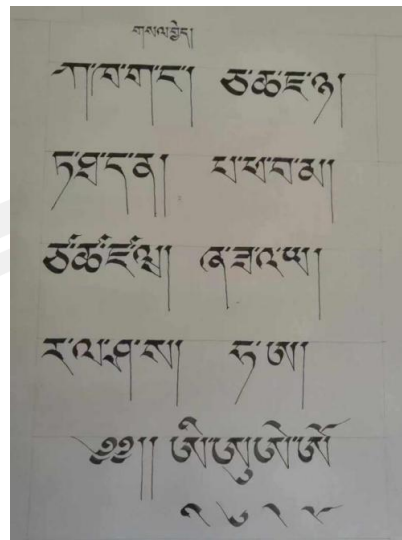 གསལ་བྱེད།
ཀ་ཁ་ག་ང་། ཅ་ཆ་ཇ་ཉ།
ཏ་ཐ་ད་ན། པ་ཕ་བ་མ།
ཙ་ཚ་ཛ་ཝ། ཞ་ཟ་འ་ཡ།
ར་ལ་ཤ་ས།། ཧ་ཨ།།
༄༅།། ཨི་ཨུ་ཨེ་ཨོ